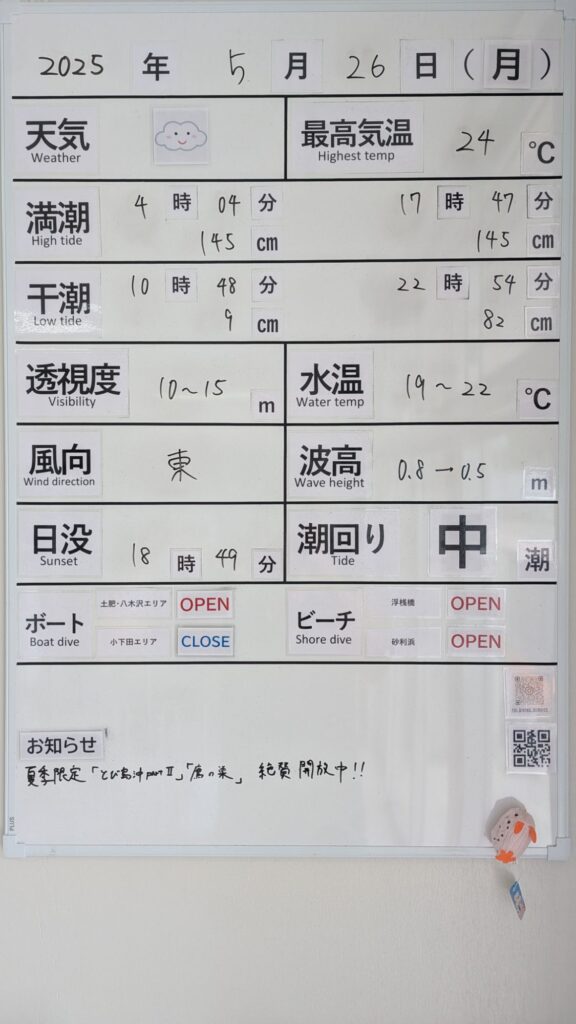 2025 年 5 月 26 日 (月)
天気 最高気温 24 ℃
Weather Highest temp
満潮 4 時 04 分 17 時 47 分
High tide 145 cm 145 cm
干潮 10 時 48 分 22 時 54 分
Low tide 9 cm 82 cm
透視度 10~15 m 水温 19~22 ℃
Visibility Water temp
風向 東 波高 0.8→0.5 m
Wind direction Wave height
日没 18 時 49 分 潮回り 中 潮
Sunset Tide
ボート 土肥・八木沢エリア OPEN ビーチ 浮桟橋 OPEN
Boat dive 小下田エリア CLOSE Shore dive 砂利浜 OPEN
お知らせ
夏季限定「とび島沖partⅡ」「の巣」 絶賛開放中!!
PLUS